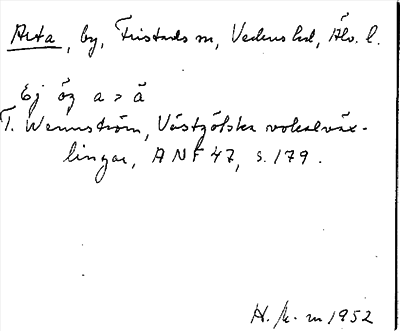 Arta, by, Fristads sn, Vedens hd, Älv. l.
Ej ög a > å
T. Wennström, Västgötska vokalväx-
lingar, ANF 47, s. 179.
H. K-m 1952